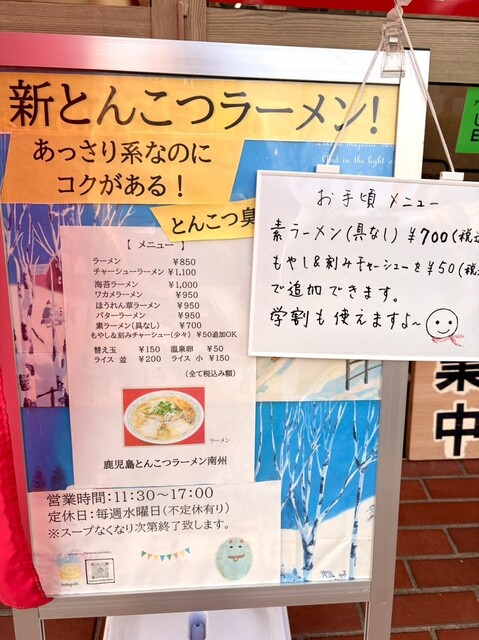 新とんこつラーメン!
あっさり系なのに
コクがある!
とんこつ臭
【 メニュー 】
ラーメン ¥850
チャーシューラーメン ¥1,100
海苔ラーメン ¥1,000
ワカメラーメン ¥950
ほうれん草ラーメン ¥950
バターラーメン ¥950
素ラーメン(具なし) ¥700
もやし&刻みチャーシュー(少々) ¥50追加OK
替え玉 ¥150 温泉卵 ¥50
ライス 並 ¥200 ライス 小 ¥150
(全て税込み額)
ラーメン
鹿児島とんこつラーメン南州
営業時間:11:30〜17:00
定休日:毎週水曜日(不定休有り)
※スープなくなり次第終了致します。
お手頃 メニュー
素ラーメン(具なし) ¥700(税込
もやし&刻みチャーシューを¥50(税
で追加できます。
学割も使えますよ〜
業中